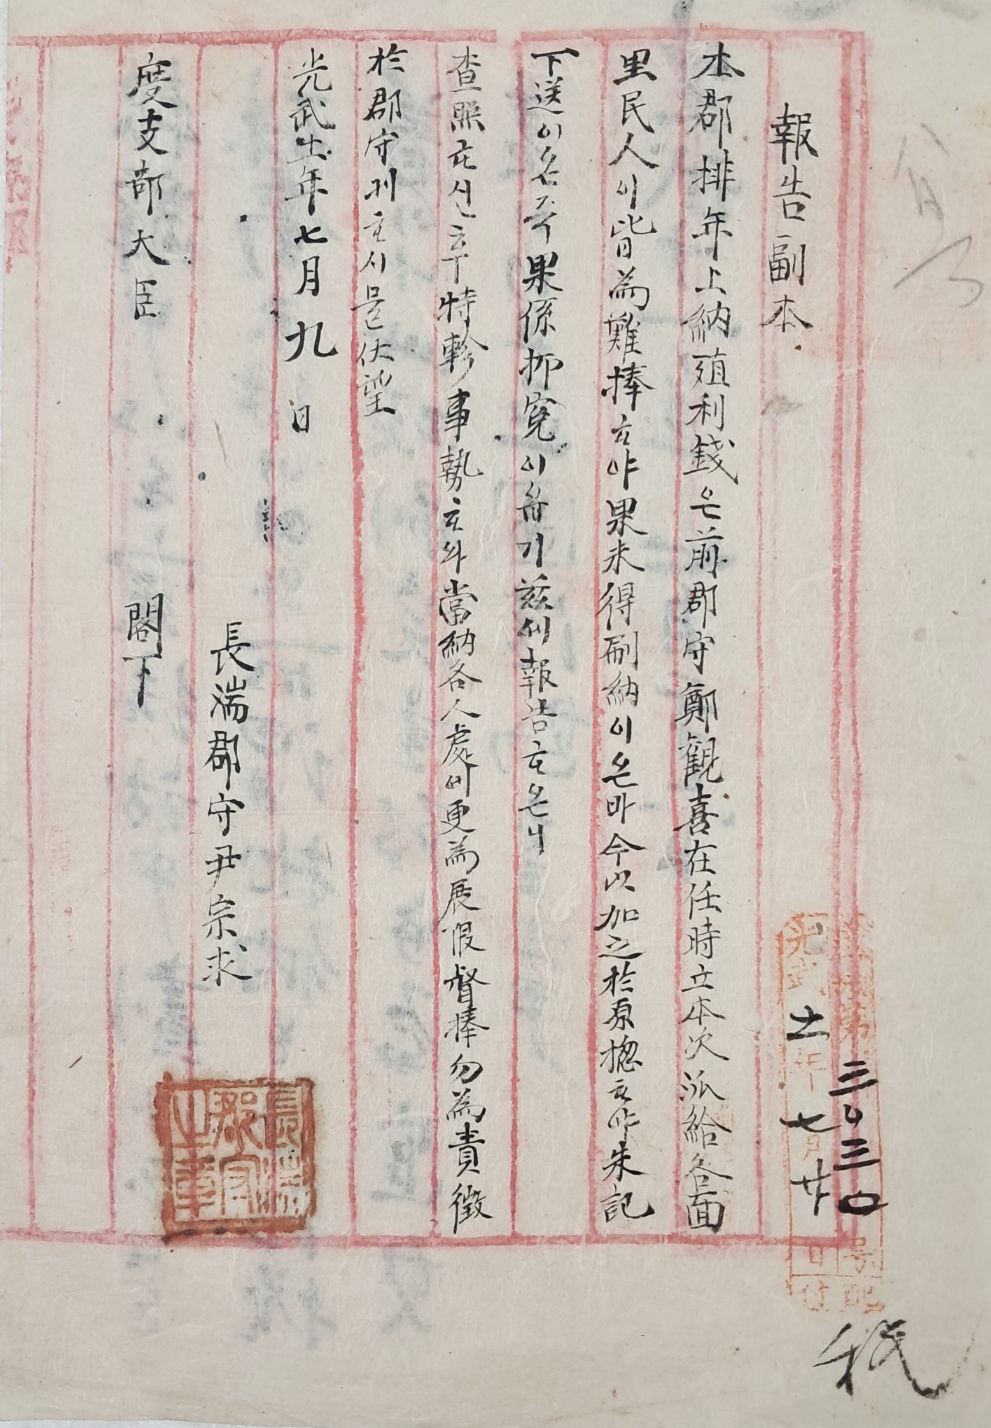 報告副本
本郡排年上納殖利錢은前郡守鄭觀喜在任時立本次派給各面
里民人이皆為難捧하야果未得刷納이온바今以加之於原摠하야朱記
下送이온즉果係抑寃이삽기玆에報告하오니
查照하신후特軫事勢하와當納各人處에更為展假督捧勿為責徵
於郡守케하시믈伏望
光武十一年七月九日
長湍郡守尹宗求
度支部大臣 閣下
長湍郡守之章
第三四三〇号
光武十一年七月廿日